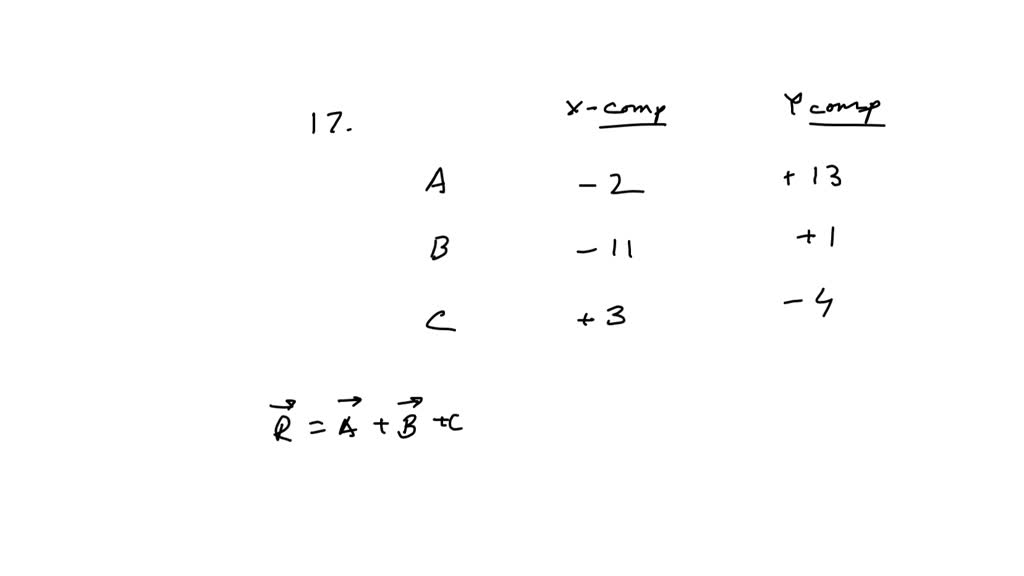 17. x-comp Y comp
A -2 +13
B -11 +1
C +3 -4
R⃗ = A⃗ + B⃗ +C